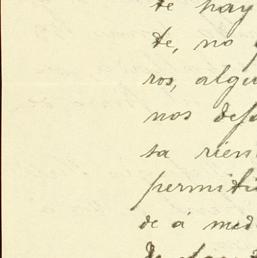 te hay
te, no
ros, algu
nos defe
ta rien
permiti
de á med